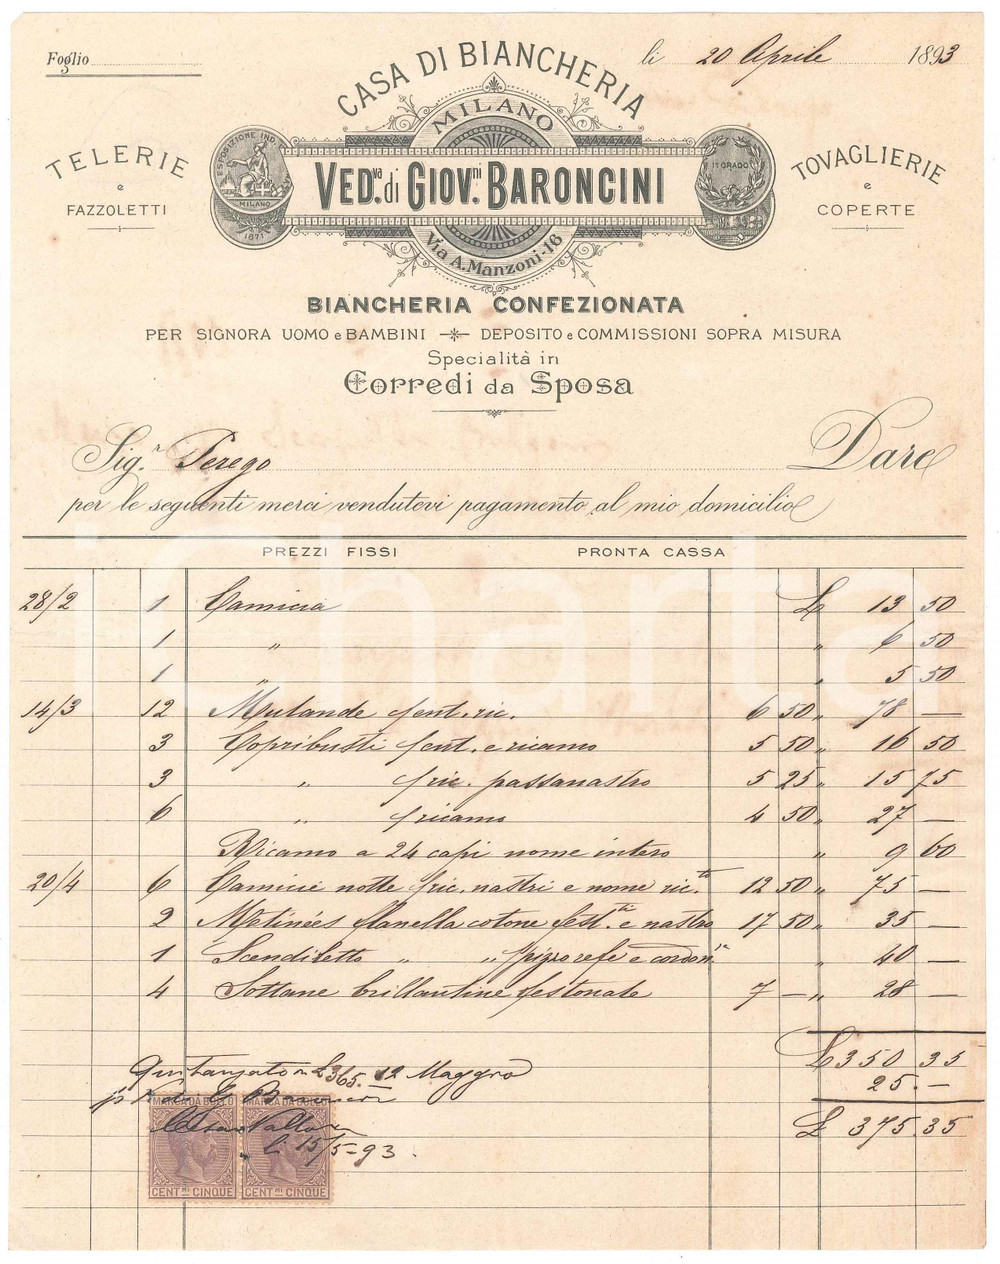 Foglio
li 20 Aprile 1893
CASA DI BIANCHERIA
MILANO
VED.va di GIOV.ni BARONCINI
Via A. Manzoni-16
ESPOSIZIONE IND.
MILANO
1871
1° GRADO
TELERIE
e
FAZZOLETTI
TOVAGLIERIE
e
COPERTE
BIANCHERIA CONFEZIONATA
PER SIGNORA UOMO e BAMBINI DEPOSITO e COMMISSIONI SOPRA MISURA
Specialità in
Corredi da Sposa
Sig.r Perego Dare
per le seguenti merci vendutevi pagamento al mio domicilio
PREZZI FISSI PRONTA CASSA
28/2 1 Camicia £ 13 50
1 " " 6 50
1 " " 5 50
14/3 12 Mutande fest. ric. 6 50 " 78 —
3 Copribusti fest. e ricamo 5 50 " 16 50
3 " f ric. passanastro 5 25 " 15 75
6 " f ricamo 4 50 " 27 —
Ricamo a 24 capi nome intero " 9 60
20/4 6 Camicie notte f ric. nastri e nome ric.to 12 50 " 75 —
2 Matinées flanella cotone fest.ti e nastro 17 50 " 35 —
1 Scendiletto " " pizzo refe e cordon.e " 40 —
4 Sottane brillantine festonate 7 — " 28 —
£ 350 35
25. —
£ 375.35
Quitanzato in £ 365.— 12 Maggio
p V.a di G. Baroncini
li 15/5=93.
MARCA DA BOLLO MARCA DA BOLLO
CENT.MI CINQUE CENT.MI CINQUE
iCharta